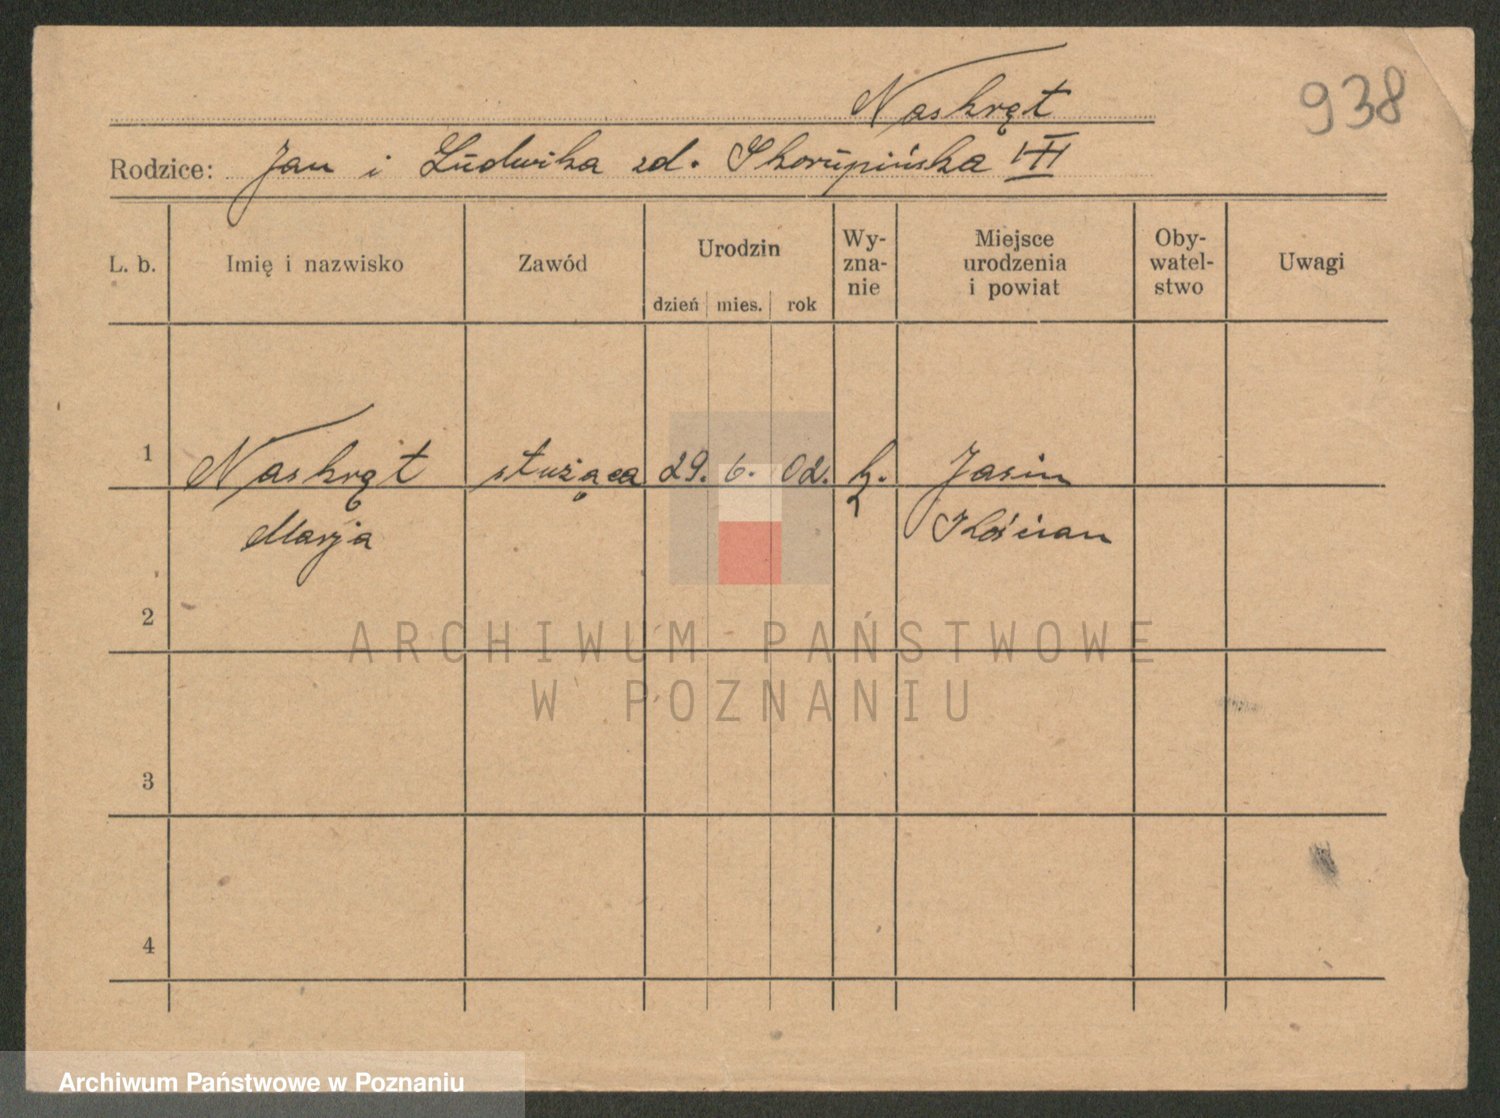 938
Naskręt
Rodzice: Jan i Ludwika zd. Skorupińska
L. b. Imię i nazwisko Zawód Urodzin dzień mies. rok Wy-zna-nie Miejsce urodzenia i powiat Oby-watel-stwo Uwagi
1 Naskręt służąca 29. 6. 02. k. Jasin
Marja Kościan
2
ARCHIWUM PAŃSTWOWE
W POZNANIU
3
4
Archiwum Państwowe w Poznaniu